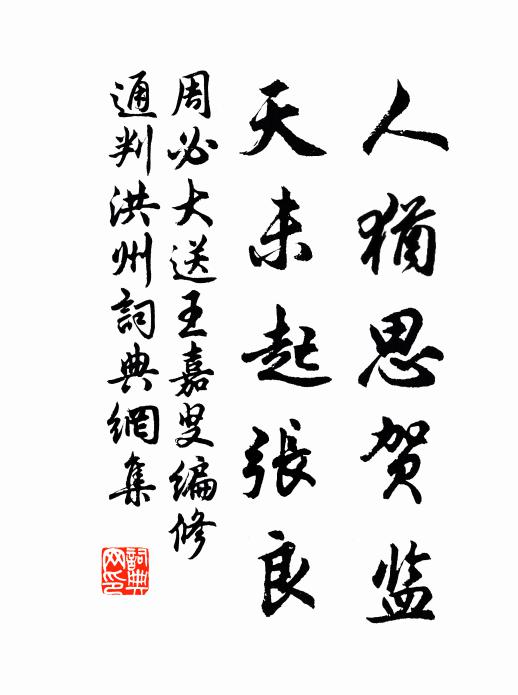 人猶思贺监
天未起張良
周必大送王嘉叟编修
通判洪州詞典網集
詞典
网印